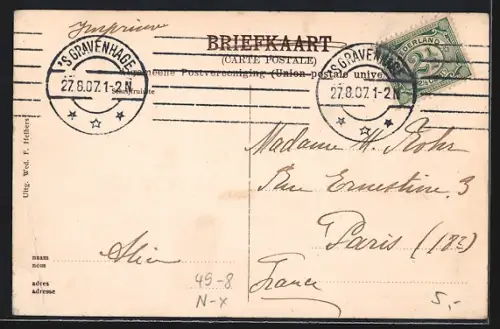 Imprimé
'S GRAVENHAGE
27.8.07.1-2N
BRIEFKAART
(CARTE POSTALE)
Algemeene Postvereeniging (Union postale universelle)
'S GRAVENHAGE
27.8.07.1-2N
NEDERLAND
2½
Uitg. Wed. F.
Madame M. Rohr
Rue Ernestine 3
Paris (18e)
France
Alice
naam
nom
adres
adresse
49-8
N-x
5,-